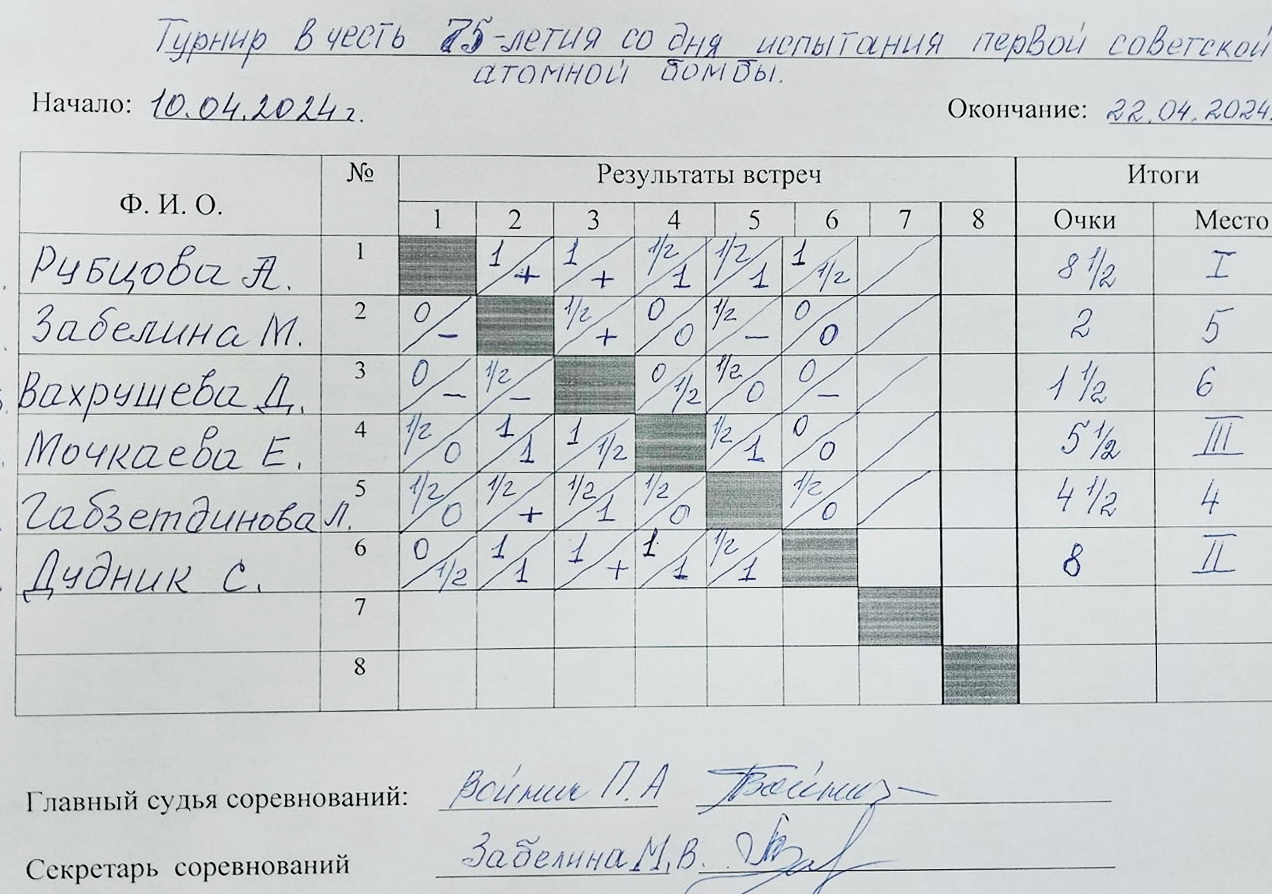 Турнир в честь 75-летия со дня испытания первой советской
атомной бомбы.
Начало: 10.04.2024г. Окончание: 22.04.2024.
Ф. И. О. № Результаты встреч Итоги
1 2 3 4 5 6 7 8 Очки Место
Рубцова А. 1 1/+ 1/+ 1/2/1 1/2/1 1/1/2 8 1/2 I
Забелина М. 2 0/– 1/2/+ 0/0 1/2/– 0/0 2 5
Вахрушева Д. 3 0/– 1/2/– 0/1/2 1/2/0 0/– 1 1/2 6
Мочкаева Е. 4 1/2/0 1/1 1/1/2 1/2/1 0/0 5 1/2 III
Габзетдинова Л. 5 1/2/0 1/2/+ 1/2/1 1/2/0 1/2/0 4 1/2 4
Дудник С. 6 0/1/2 1/1 1/+ 1/1 1/2/1 8 II
7
8
Главный судья соревнований: Войнич П.А
Секретарь соревнований Забелина М.В.